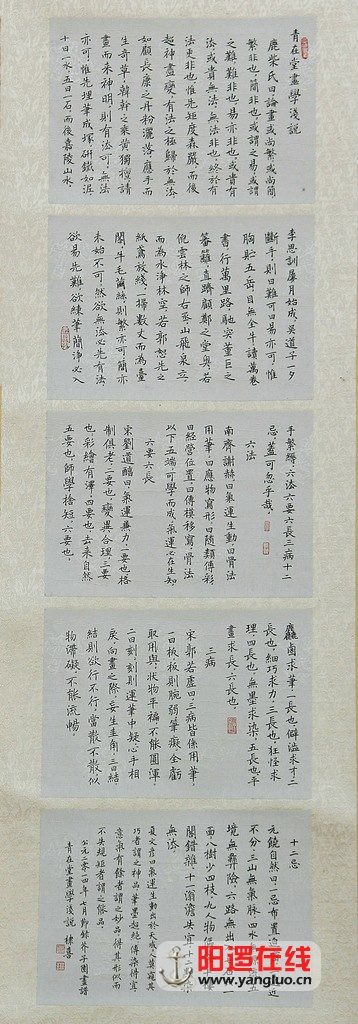 青在堂畫學淺説
鹿柴氏曰論畫或尚繁或尚簡
繁非也簡非也或謂之易或謂
之難難非也易亦非也或貴有
法或貴無法無法非也終於有
法更非也惟先矩度森嚴而後
超神盡變有法之極歸於無法
如顧長康之丹粉灑落應手而
生奇草韓幹之乘黃獨擅請
畫而来神明則有法可無法
亦可惟先埋筆成塚研鐵如泥
十日一水五日一石而後嘉陵山水
李思訓屢月始成吳道子一夕
斷手則曰難可曰易亦可惟
胸貯五岳目無全牛讀萬卷
書行萬里路馳突董巨之
藩籬直躋顧鄭之堂奥若
倪雲林之師右丞山飛泉立
而為水淨林空若郭恕先之
紙鳶放线一掃數丈而為臺
閣牛毛繭絲則繁亦可簡亦
未始不可然欲無法必先有法
欲易先難欲練筆簡淨必入
手繁縟六法六要六長三病十二
忌蓋可忽乎哉
六法
南齊謝赫曰氣運生動曰骨法
用筆曰應物寫形曰随類傅彩
曰經營位置曰傳模移寫骨法
以下五端可學而成氣運必在生知
六要六長
宋劉道醇曰氣運兼力一要也格
制俱老二要也變異合理三要
也彩繪有澤四要也去来自然
五要也師學捨短六要也
麤鹵求筆一長也僻澁求才二
長也細巧求力三長也狂怪求
理四長也無墨求染五長也平
畫求長六長也
三病
宋郭若虚曰三病皆係用筆
一曰板板則腕弱筆癡全虧
取用與狀物平褊不能圓渾
二曰刻刻則運筆中疑心手相
戾向畫之際妄生圭角三曰結
結則欲行不行當散不散似
物滯礙不能流暢
十二忌
元饒自然曰一忌布置迫
近不分三山無氣脉四水
境無彝險六路無出
面八樹少四枝九人物傴
閣錯雜十一滃澹失宜十二
無法
夏文彦曰氣運生動出於天成人莫窺其
巧者謂之神品筆墨超絶傳染得宜
意氣有餘者謂之妙品得其形似而
不失規矩者謂之能品
公元二零一四年七月節録芥子園畫譜
青在堂畫學淺説
阳逻在线
www.yangluo.cn